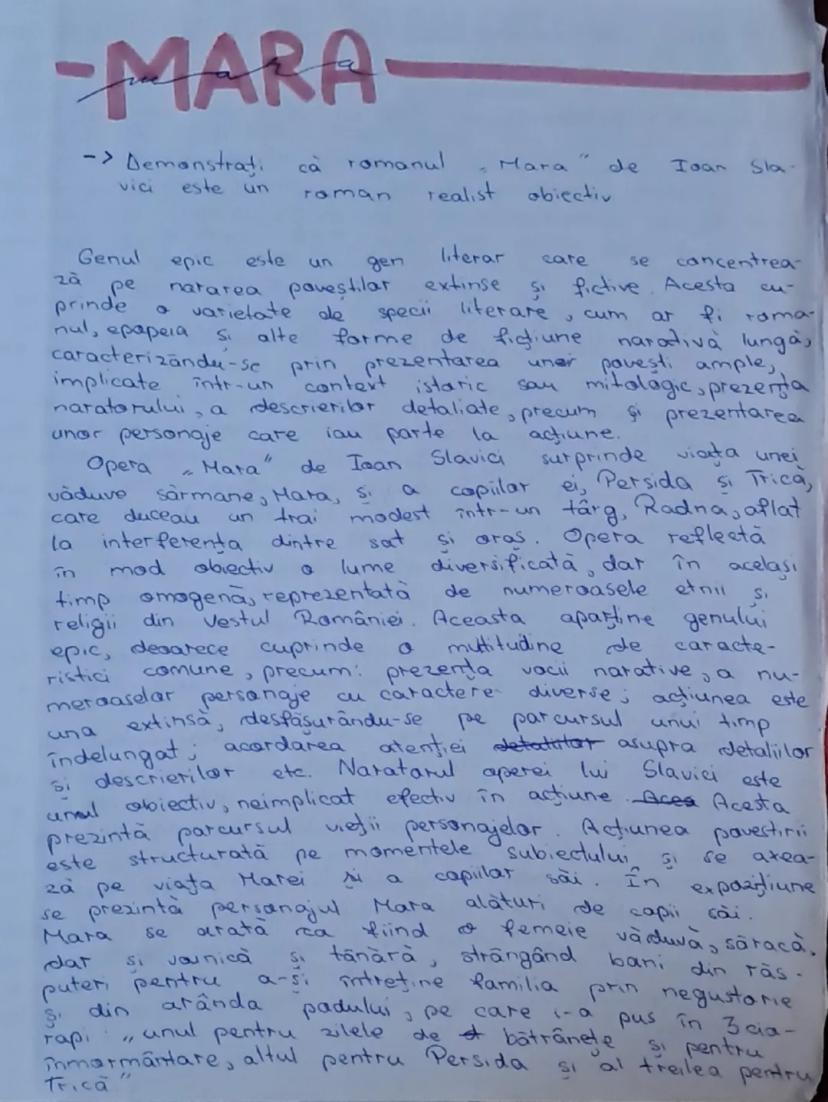 MARA
mara
-> Demonstrați că romanul „Mara" de Ioan Sla-
vici este un roman realist obiectiv
Genul epic este un gen literar care se concentrea-
ză pe nararea poveștilor extinse și fictive. Acesta cu-
prinde o varietate de specii literare, cum ar fi roma-
nul, epopeia și alte forme de ficțiune narativă lungă,
caracterizându-se prin prezentarea unor povești ample,
implicate într-un context istoric sau mitologic, prezența
naratorului, a descrierilor detaliate, precum și prezentarea
unor personaje care iau parte la acțiune.
Opera „Mara" de Ioan Slavici surprinde viața unei
văduve sărmane, Mara, și a copiilor ei, Persida și Trică,
care duceau un trai modest într-un târg, Radna, aflat
la interferența dintre sat și oraș. Opera reflectă
în mod obiectiv o lume diversificată, dar în același
timp omogenă, reprezentată de numeroasele etnii și
religii din vestul României. Aceasta aparține genului
epic, deoarece cuprinde o multitudine de caracte-
ristici comune, precum: prezența vocii narative, a nu-
meroaselor personaje cu caractere diverse; acțiunea este
una extinsă, desfășurându-se pe parcursul unui timp
îndelungat; acordarea atenției asupra detaliilor
și descrierilor etc. Naratorul operei lui Slavici este
unul obiectiv, neimplicat efectiv în acțiune. Acesta
prezintă parcursul vieții personajelor. Acțiunea povestirii
este structurată pe momentele subiectului și se axea-
ză pe viața Marei și a copiilor săi. În expozițiune
se prezintă personajul Mara alături de copii săi.
Mara se arată ca fiind o femeie văduvă, săracă,
dar și voinică și tânără, strângând bani din răs-
puteri pentru a-și întreține familia prin negustorie
și din arânda podului, pe care i-a pus în 3 cio-
rapi: „unul pentru zilele de bătrânețe și pentru
înmormântare, altul pentru Persida și al treilea pentru
Trică"